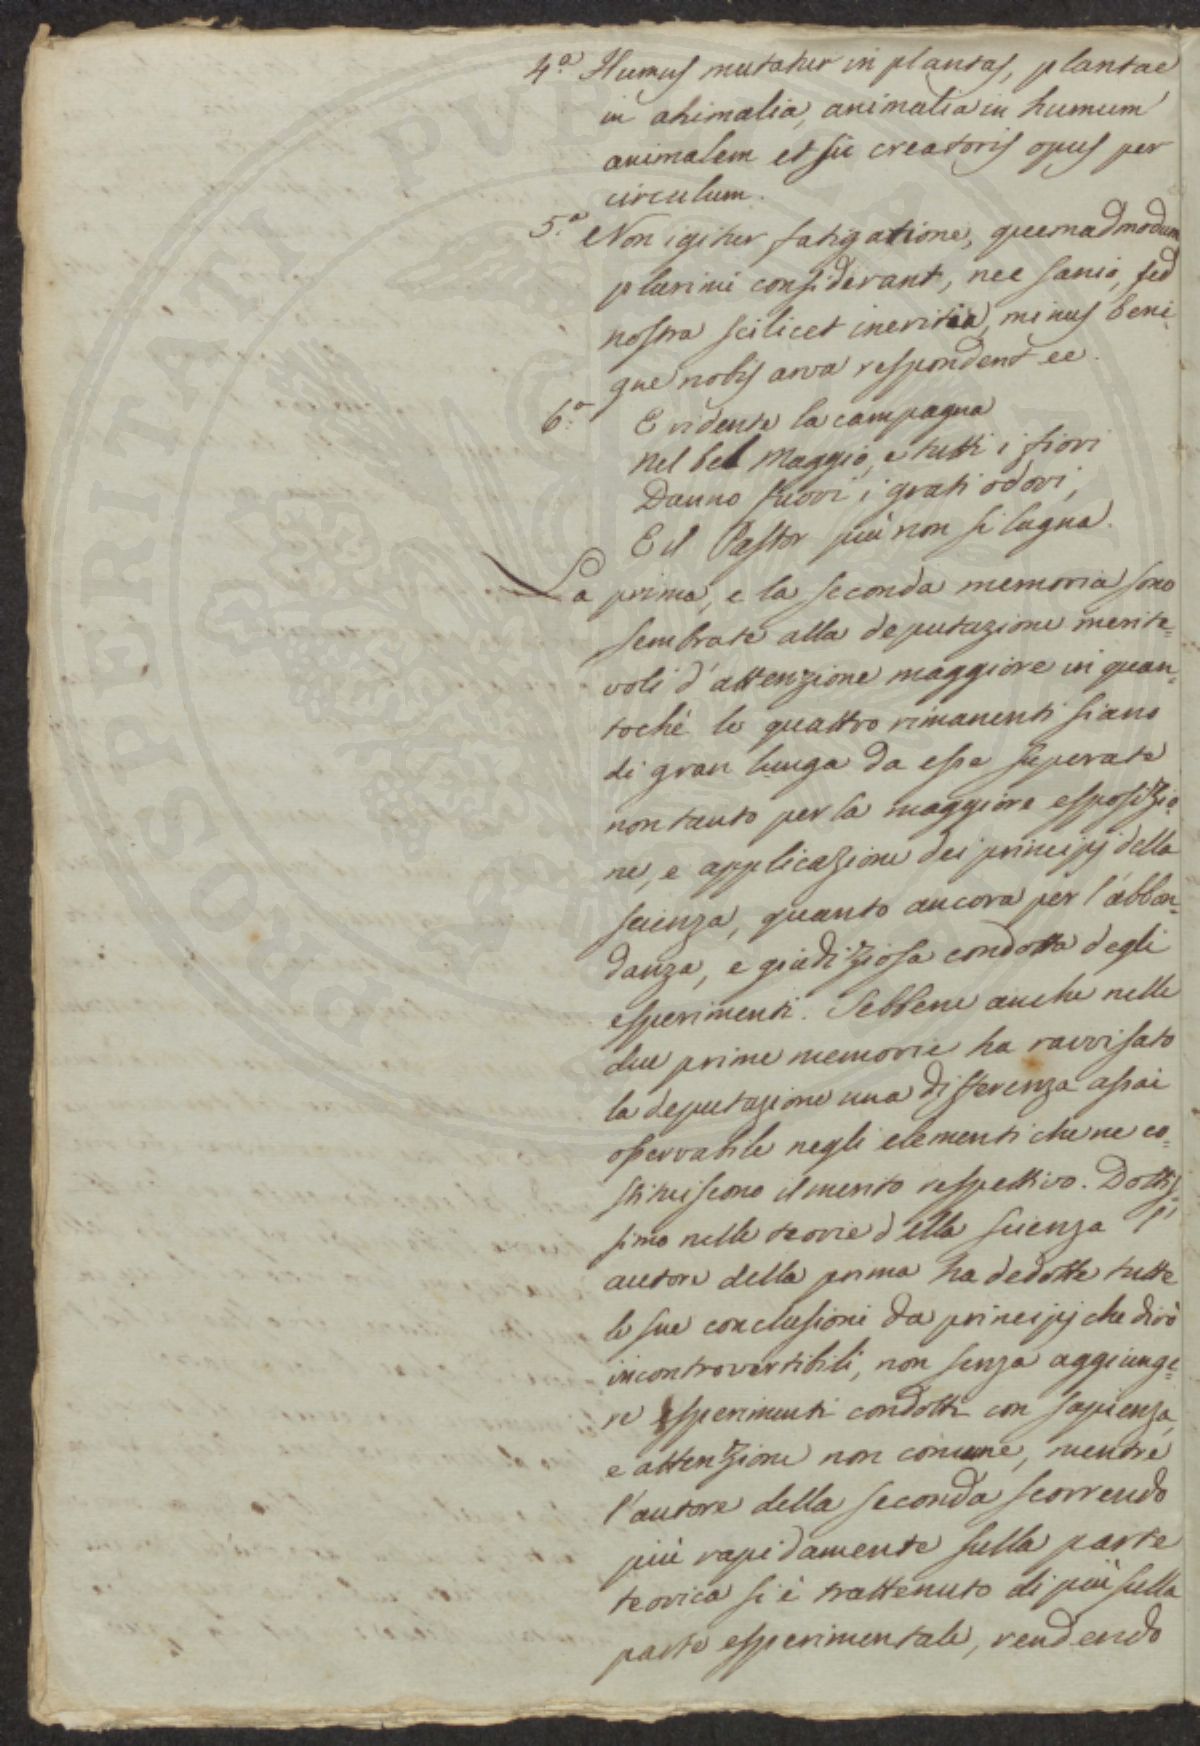 4.ª Humus mutatur in plantas, plantae
in ahimalia, animalia in humum
animalem et sic creatoris opus per
circulum.
5.ª Non igitur fatigatione, quemadmodum
plurimi considerant, nec senio, sed
nostra scilicet inertia, minus beni
gne nobis arva respondent ec.
6.ª E ridente la campagna
Nel bel Maggio, e tutti i fiori
Danno fuori i grati odori,
E il Pastor più non si lagna.
La prima, e la seconda memoria sono
sembrate alla deputazione merite=
voli d'attenzione maggiore in quan=
tochè le quattro rimanenti siano
di gran lunga da esse superate
non tanto per la maggiore esposizio
ne, e applicazione dei principj della
scienza, quanto ancora per l'abbon=
danza, e giudiziosa condotta degli
esperimenti. Sebbene anche nelle
due prime memorie ha ravvisato
la deputazione una differenza assai
osservabile negli elementi che ne co=
stituiscono il merito respettivo. Dottis=
simo nelle teorie della scienza l'
autore della prima ha dedotte tutte
le sue conclusioni da principj che dirò
incontrovertibili, non senza aggiunge=
re esperimenti condotti con sapienza,
e attenzione non comune, mentre
l'autore della seconda scorrendo
più rapidamente sulla parte
teorica si è trattenuto di più sulla
parte esperimentale, rendendo
PROSPERITATI PUBLICAE